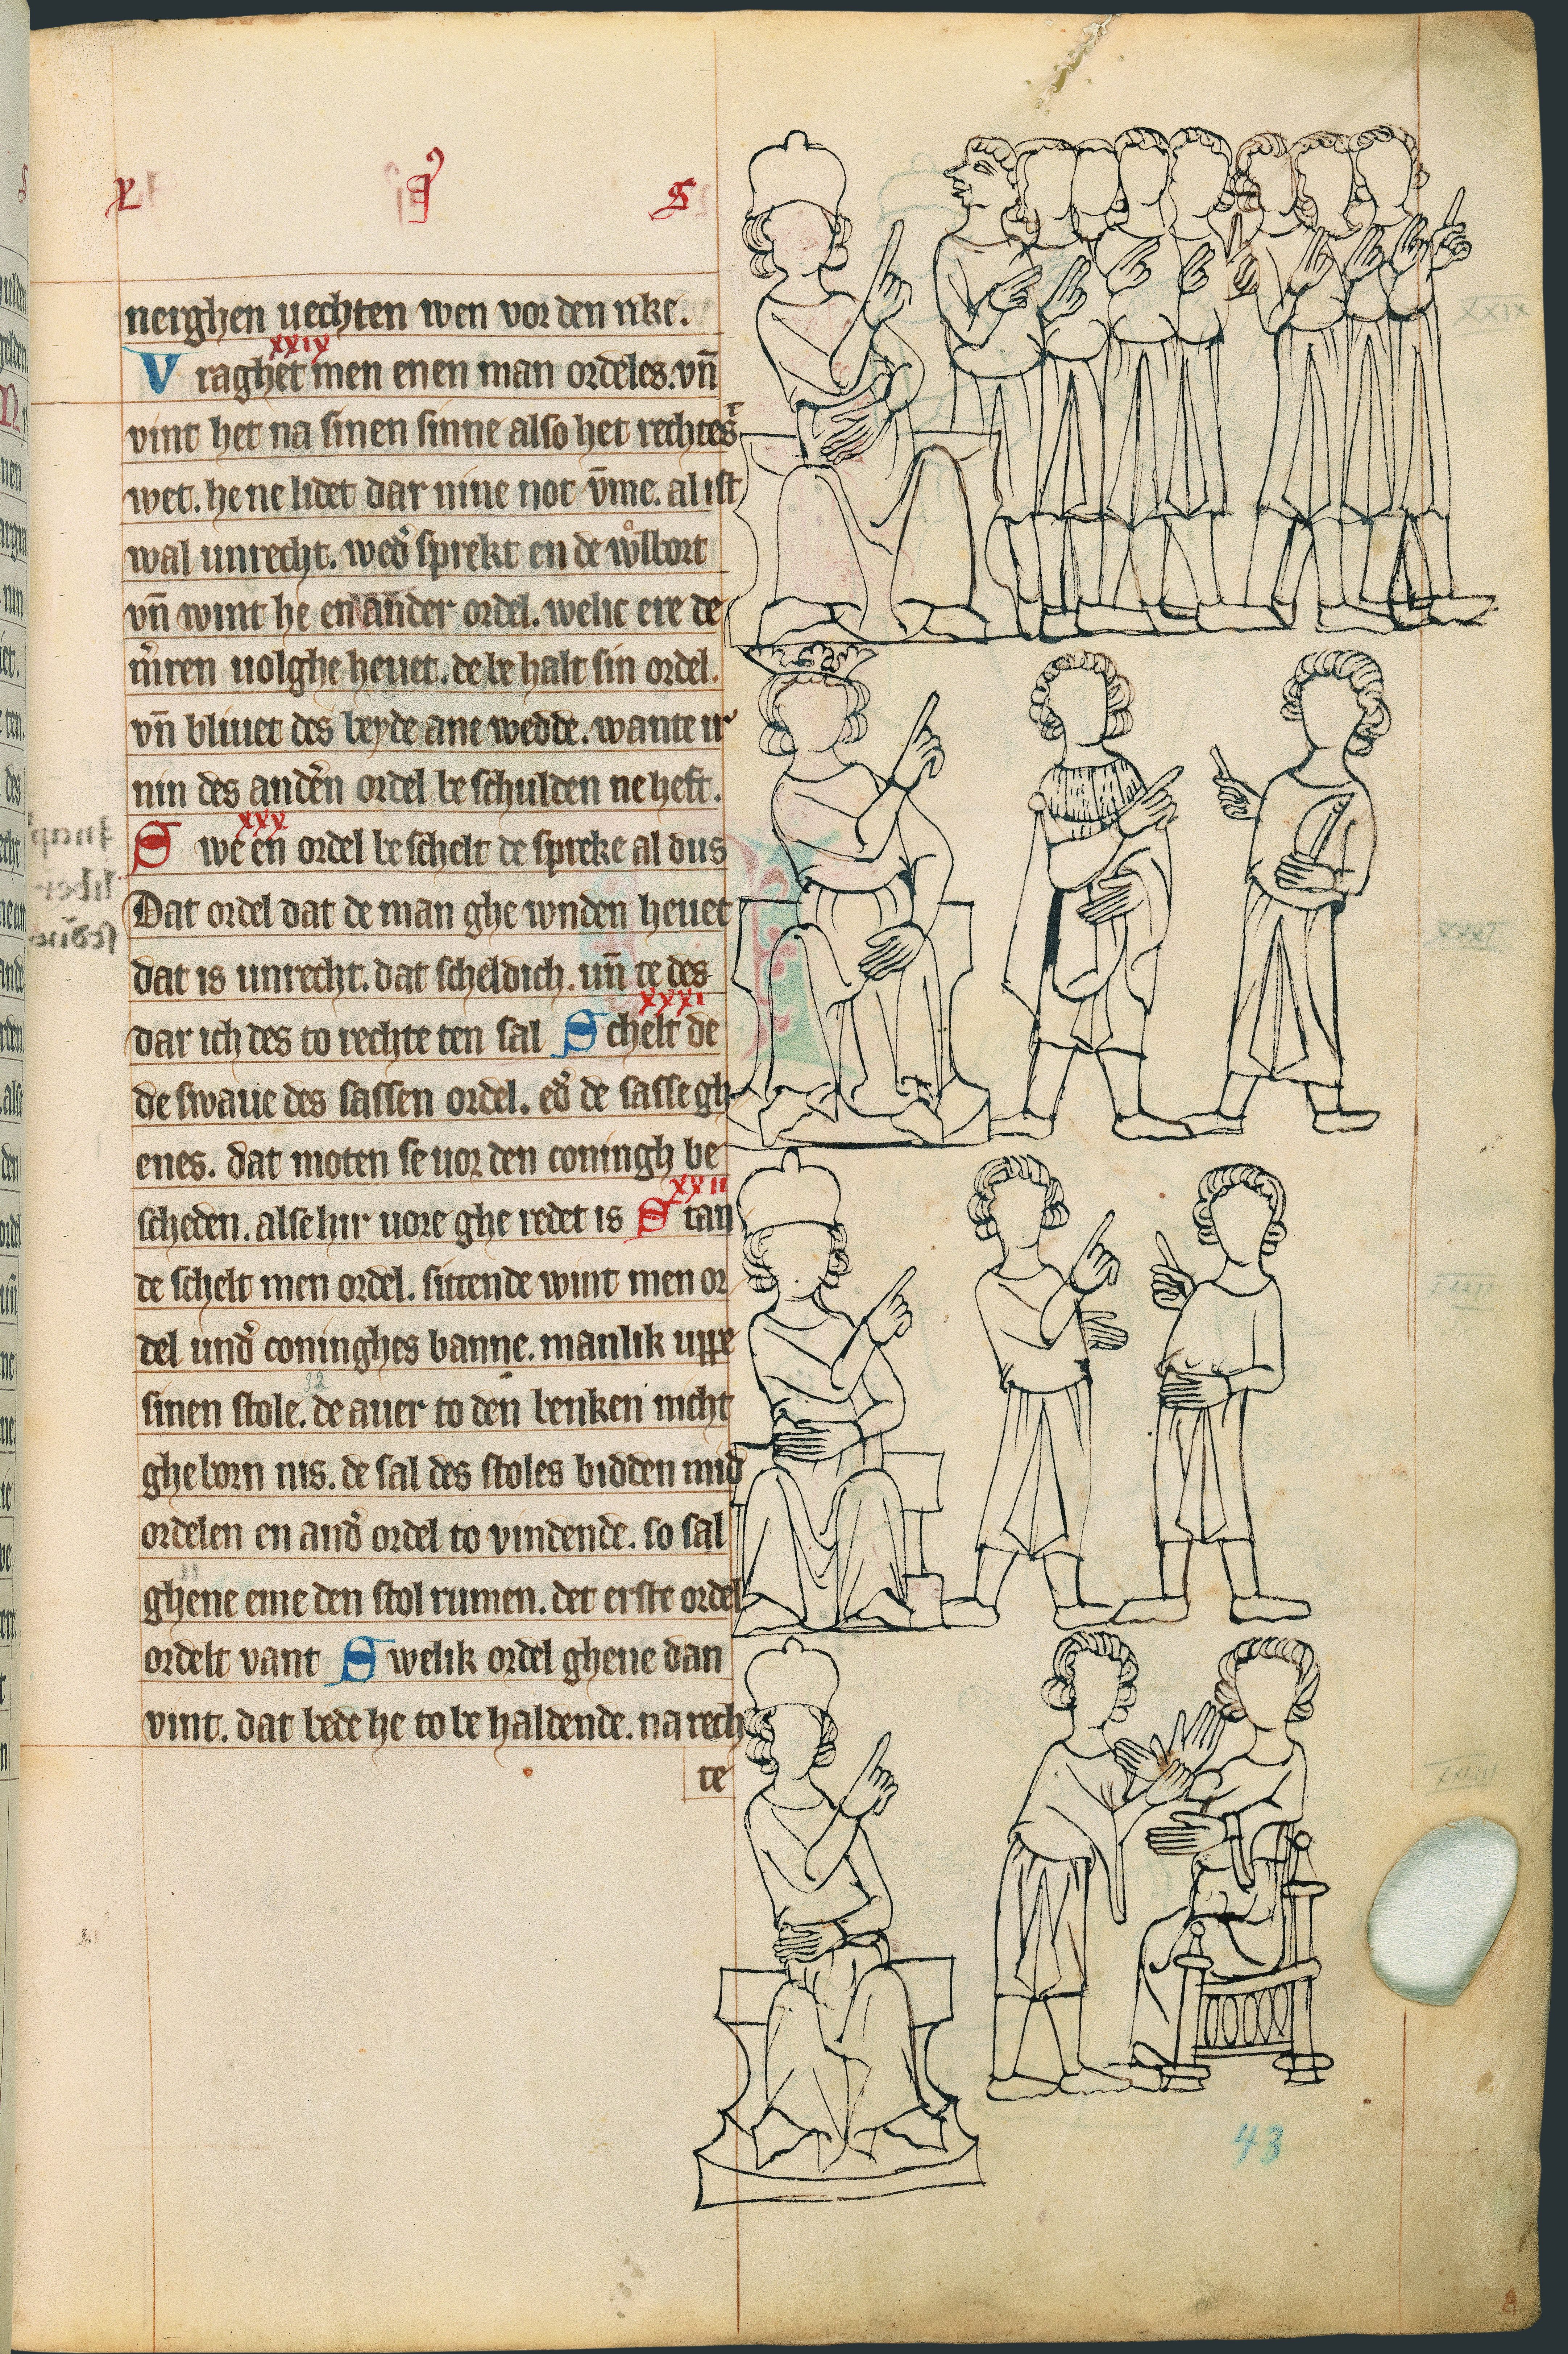 nerghen uechten wen vor den rike.
xxix
Vraghet men enen man ordeles. vn̄
vint het na sinen sinne also het rechtest
wet. he ne lidet dar nine not v̄me. al ist
wal unrecht. wed͛ sprekt en de wͦlbort
vn̄ wint he en ander ordel. welic ere de
m͛ren uolghe heuet. de be halt sin ordel.
vn̄ bliuet des beyde ane wedde. wante ir
nin des and͛en ordel be schulden ne heft.
xxx
Swe en ordel be schelt de spreke al dus
Dat ordel dat de man ghe wnden heuet
dat is unrecht. dat scheldich. un̄ te des
xxxi
dar ich des to rechte ten sal Schelt de
de swaue des sassen ordel. ed͛ de sasse gh
enes. dat moten se uor den coningh be
xxxii
scheden. alse hir uore ghe redet is Stan
de schelt men ordel. sittende wint men or
del und͛ coninghes banne. manlik uppe
32
sinen stole. de auer to den benken nicht
ghe born nis. de sal des stoles bidden mid
ordelen en and͛ ordel to vindende. so sal
ghene eme den stol rumen. det erste ordel
ordelt vant Swelik ordel ghene dan
vint. dat bede he to be haldende. na rech
te
XXIX
XXX
43